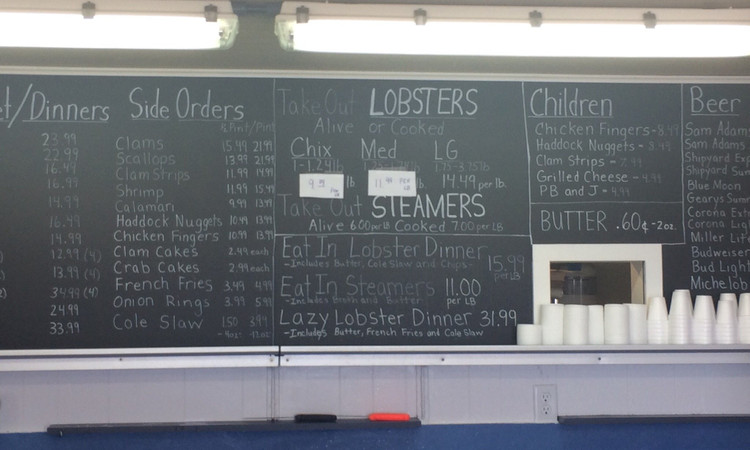 et/Dinners
23.99
22.99
16.49
16.99
14.99
16.49
14.99
12.99 (4)
13.99 (4)
34.99 (4)
24.99
33.99
Side Orders
½ Pint/Pint
Clams 15.49 21.99
Scallops 13.99 21.99
Clam Strips 11.99 14.99
Shrimp 11.99 15.49
Calamari 9.99 13.99
Haddock Nuggets 10.49 13.99
Chicken Fingers 10.99 13.99
Clam Cakes 2.49 each
Crab Cakes 2.99 each
French Fries 3.49 4.99
Onion Rings 3.99 5.99
Cole Slaw 1.50 3.99
Take Out LOBSTERS
Alive or Cooked
Chix Med LG
1-1.24 lb
9.99 lb 11.99 per lb 14.49 per lb.
Take Out STEAMERS
Alive 6.00 per lb Cooked 7.00 per LB
Eat In Lobster Dinner 15.99 per LB
-Includes Butter, Cole Slaw and Chips-
Eat In Steamers 11.00 per LB
-Includes Broth and Butter
Lazy Lobster Dinner 31.99
-Includes Butter, French Fries and Cole Slaw
Children
Chicken Fingers - 8.49
Haddock Nuggets - 8.49
Clam Strips - 7.99
Grilled Cheese - 4.99
PB and J - 4.99
BUTTER .60¢ -2oz.
Beer
Sam Adam
Sam Adams
Shipyard Ex
Shipyard Sum
Blue Moon
Gearys Summ
Corona Ext
Corona Ligh
Miller Lit
Budweiser
Bud Light
Michelob